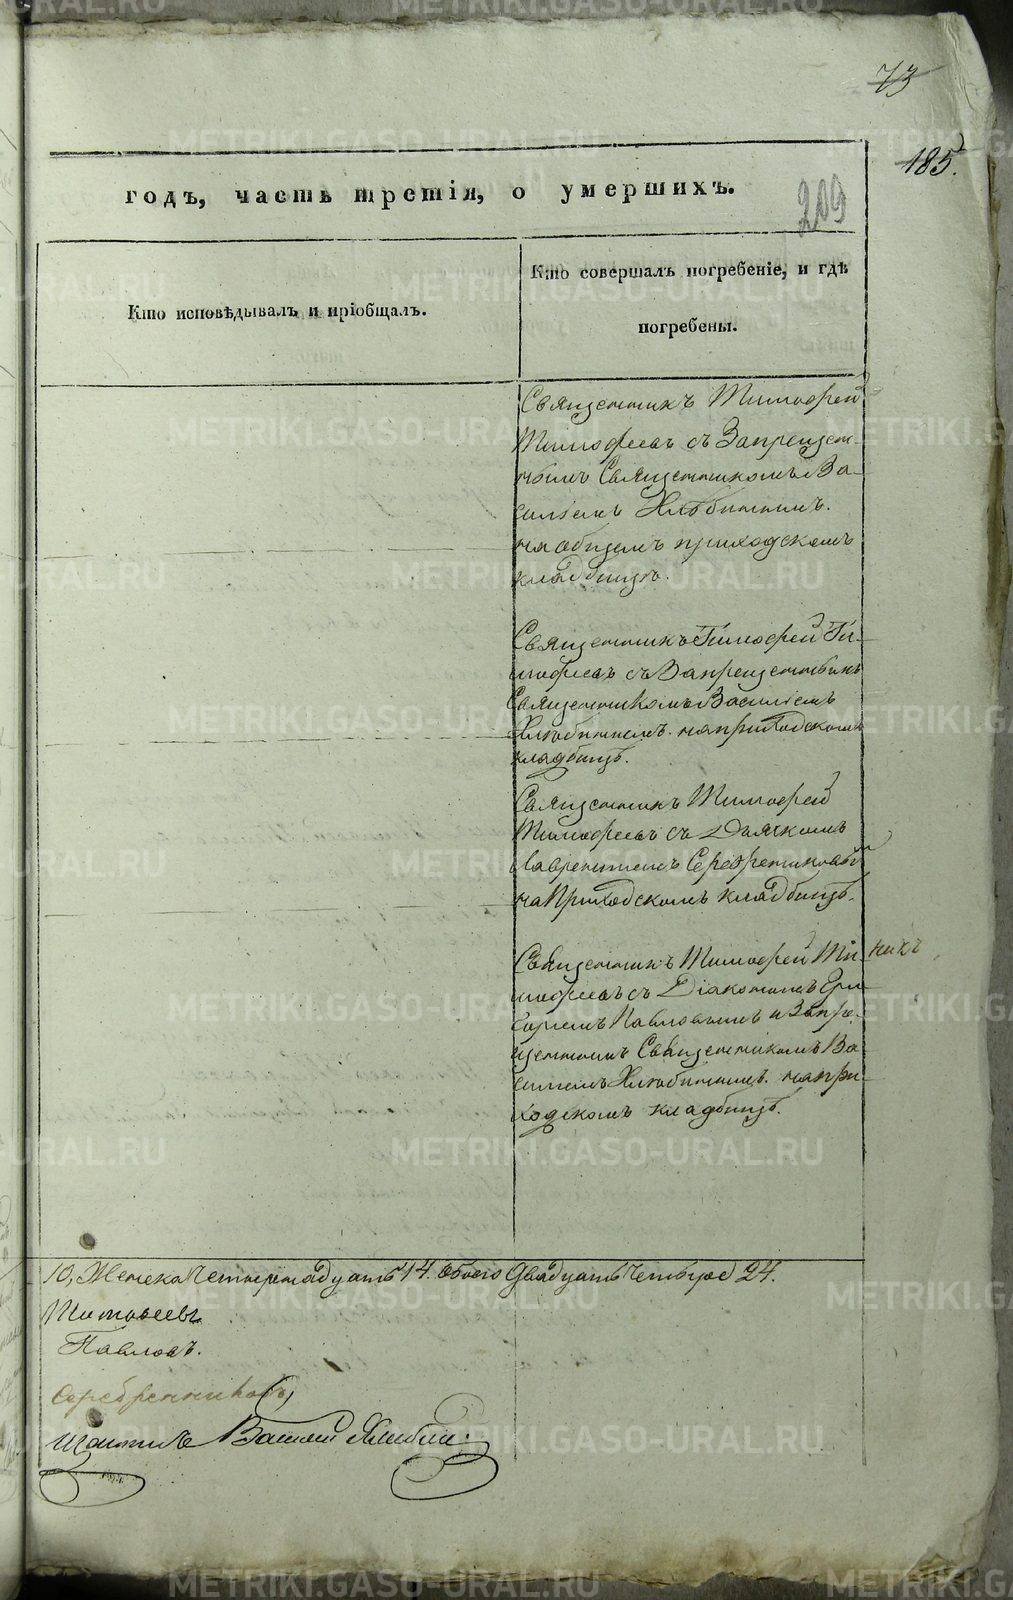 73
185.
209
годъ, часть третія, о умершихъ.
Кто исповѣдывалъ и пріобщалъ.
Кто совершалъ погребеніе, и гдѣ
погребены.
Священникъ Тимофей
Тимофеевъ съ Запрещен-
нымъ Священникомъ Ва-
силіемъ
на общемъ приходскомъ
кладбищѣ.
Священникъ Тимофей Ти-
мофеевъ съ Запрещеннымъ
Священникомъ Василіемъ
на приходскомъ
кладбищѣ.
Священникъ Тимофей
Тимофеевъ съ Дьячкомъ
Лаврентіемъ Серебренниковымъ
на Приходскомъ кладбищѣ.
Священникъ Тимофей Ти-
мофеевъ съ Діакономъ Гри-
горіемъ Павловымъ и Запре-
щеннымъ Священникомъ Ва-
силіемъ на при-
ходскомъ кладбищѣ.
10, Женска Четырнадцать 14. Обоего Двадцать четыре 24.
Тимофеевъ
Павловъ.
Серебренниковъ
Василій
METRIKI.GASO-URAL.RU